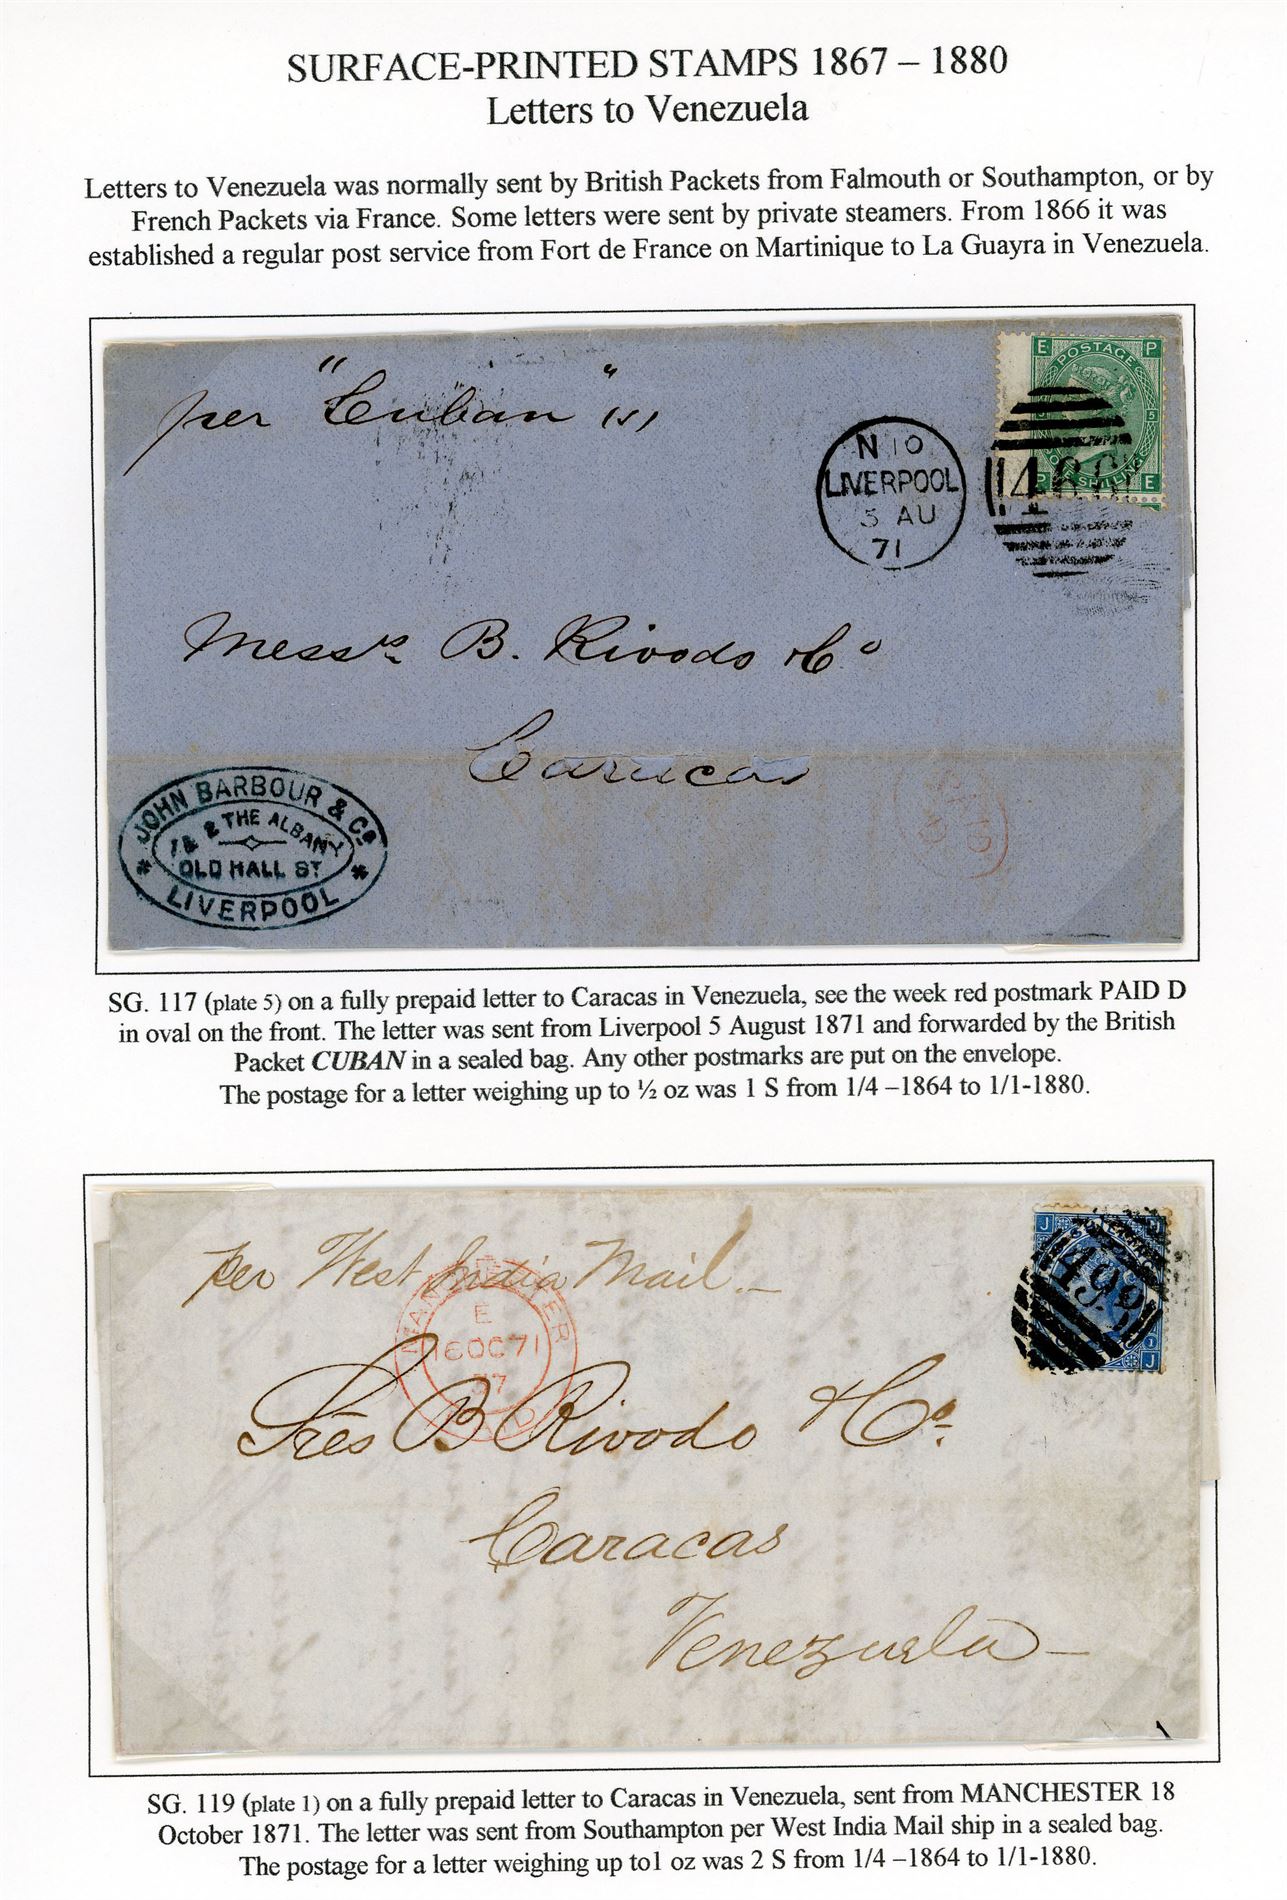 SURFACE-PRINTED STAMPS 1867 – 1880
Letters to Venezuela
Letters to Venezuela was normally sent by British Packets from Falmouth or Southampton, or by
French Packets via France. Some letters were sent by private steamers. From 1866 it was
established a regular post service from Fort de France on Martinique to La Guayra in Venezuela.
per "Cuban" (s)
E P
POSTAGE
5
ONE SHILLING
P E
N 10
LIVERPOOL
5 AU
71
466
Messrs B. Rivodo & Co
Caracas
PAID
JOHN BARBOUR & Co
1 & 2 THE ALBANY
OLD HALL ST
LIVERPOOL
SG. 117 (plate 5) on a fully prepaid letter to Caracas in Venezuela, see the week red postmark PAID D
in oval on the front. The letter was sent from Liverpool 5 August 1871 and forwarded by the British
Packet CUBAN in a sealed bag. Any other postmarks are put on the envelope.
The postage for a letter weighing up to ½ oz was 1 S from 1/4 –1864 to 1/1-1880.
per West India Mail. –
MANCHESTER
E
OC 71
J
498
1
J
Sres B Rivodo & Co.
Caracas
Venezuela –
SG. 119 (plate 1) on a fully prepaid letter to Caracas in Venezuela, sent from MANCHESTER 18
October 1871. The letter was sent from Southampton per West India Mail ship in a sealed bag.
The postage for a letter weighing up to1 oz was 2 S from 1/4 –1864 to 1/1-1880.